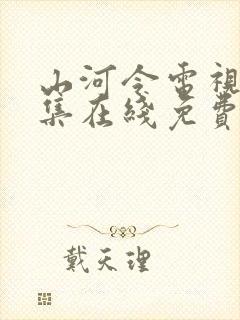 山河令電視
集在綫免費
戴天理